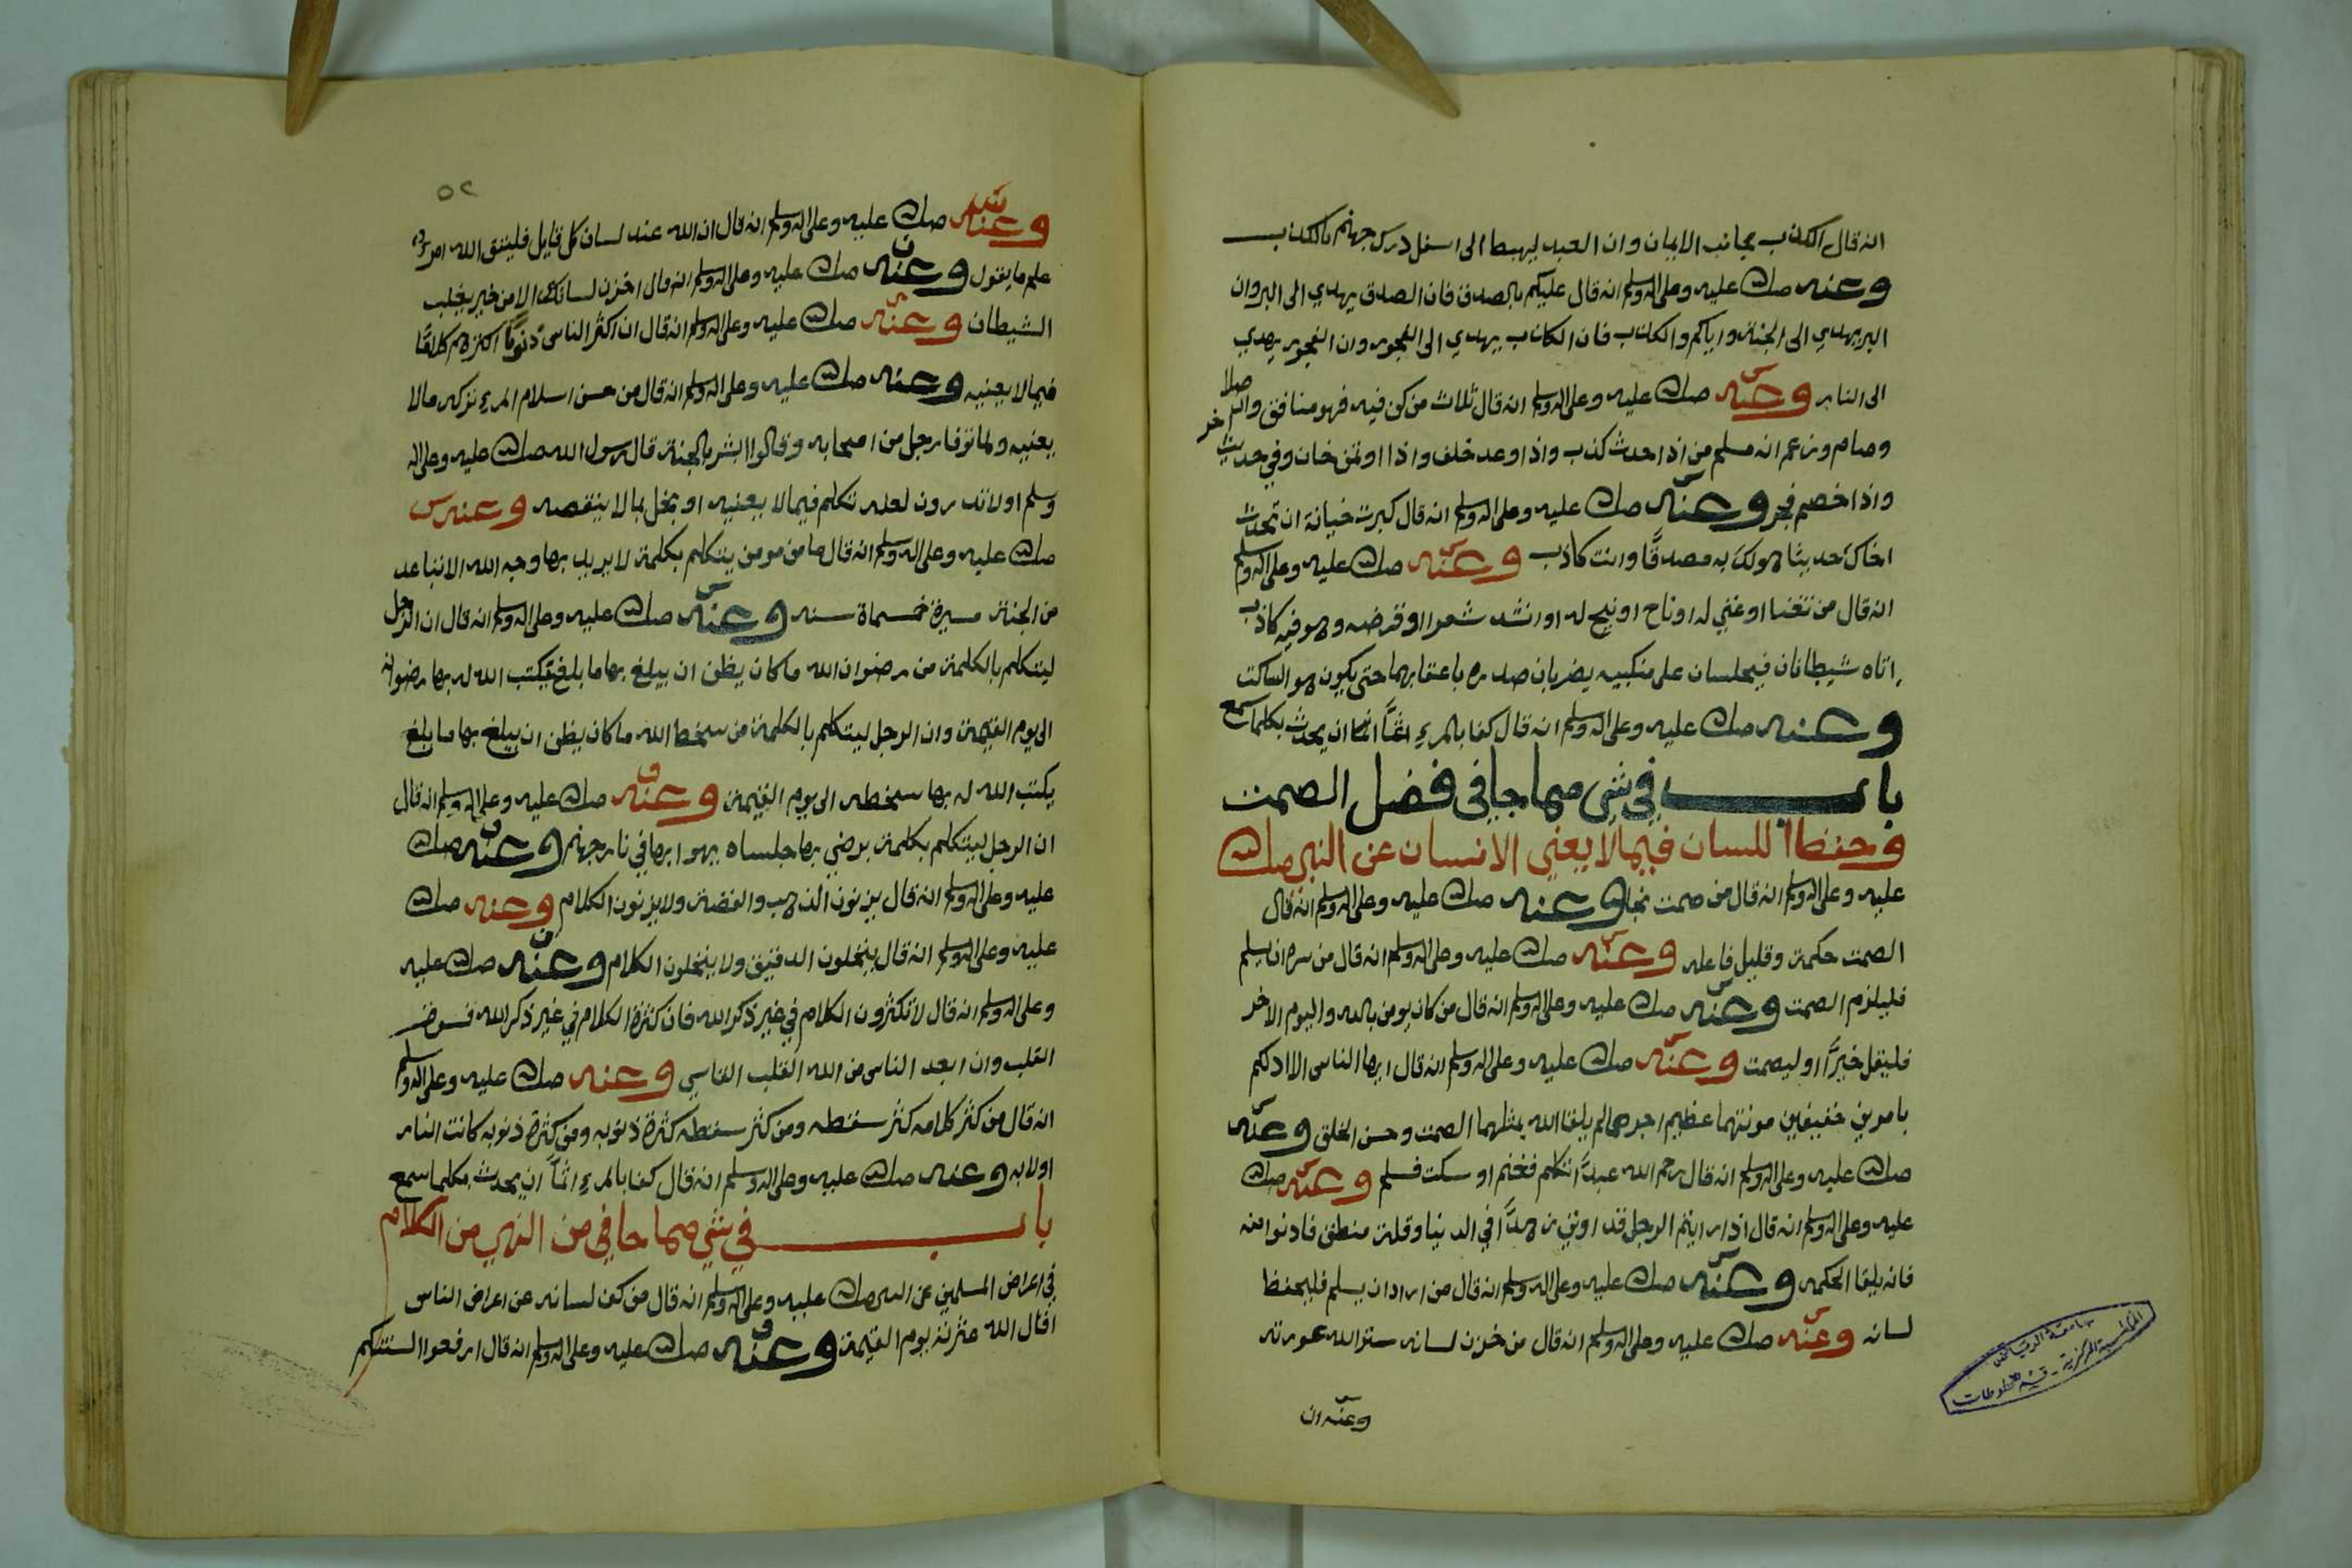 انه قال الكذب يجانب الايمان وان العبد ليهبط الى اسفل درك جهنم بالكذب
وعنه صلى الله عليه وعلى اله وسلم انه قال عليكم بالصدق فان الصدق يهدي الى البر وان
البر يهدي الى الجنة واياكم والكذب فان الكذب يهدي الى الفجور وان الفجور يهدي
الى النار وعنه صلى الله عليه وعلى اله وسلم انه قال ثلاث من كن فيه فهو منافق وان صلا
وصام وزعم انه مسلم من اذا حدث كذب واذا وعد خلف واذا اوتمن خان وفي حديث اخر
واذا خصم فجر وعنه صلى الله عليه وعلى اله وسلم انه قال كبرت خيانة ان تحدث
اخاك حديثا هو لك به مصدقا وانت كاذب وعنه صلى الله عليه وعلى اله وسلم
انه قال من تغنا او غني له او ناح او نيح له او انشد شعرا او قرضه وهو فيه كاذب
اتاه شيطانان فيجلسان على منكبيه يضربان صدره باعقابهما حتى يكون هو الساكت
وعنه صلى الله عليه وعلى اله وسلم انه قال كفا بالمرء اثما ان يحدث بكلما سمع
باب في شي مما جا في فضل الصمت
وحفظ اللسان فيما لا يعني الانسان عن النبي صلى الله
عليه وعلى اله وسلم انه قال من صمت نجا وعنه صلى الله عليه وعلى اله وسلم انه قال
الصمت حكمة وقليل فاعله وعنه صلى الله عليه وعلى اله وسلم انه قال من سره ان يسلم
فليلزم الصمت وعنه صلى الله عليه وعلى اله وسلم انه قال من كان يومن بالله واليوم الاخر
فليقل خيرا او ليصمت وعنه صلى الله عليه وعلى اله وسلم انه قال ايها الناس الا ادلكم
بامرين خفيفين مونتهما عظيم اجرهما لم يلقا الله بمثلهما الصمت وحسن الخلق وعنه
صلى الله عليه وعلى اله وسلم انه قال رحم الله عبدا تكلم فغنم او سكت فسلم وعنه صلى الله
عليه وعلى اله وسلم انه قال اذا رايتم الرجل قد اوتي زهدا في الدنيا وقلة منطق فادنوا منه
فانه يلقا الحكمه وعنه صلى الله عليه وعلى اله وسلم انه قال من اراد ان يسلم فليحفظ
لسانه وعنه صلى الله عليه وعلى اله وسلم انه قال من خزن لسانه ستر الله عورته
وعنه ان
جامعة الرياض
المكتبة المركزية - قسم المخطوطات
٥٢
وعنه صلى الله عليه وعلى اله وسلم انه قال ان الله عند لسان كل قايل فليتق الله امرؤ
علم ما يقول وعنه صلى الله عليه وعلى اله وسلم انه قال اخزن لسانك الا من خير يغلب
الشيطان وعنه صلى الله عليه وعلى اله وسلم انه قال ان اكثر الناس ذنوبا اكثرهم كلاما
فيما لا يعنيه وعنه صلى الله عليه وعلى اله وسلم انه قال من حسن اسلام المرء تركه ما لا
يعنيه ولما توفا رجل من اصحابه وقالوا ابشر بالجنة قال رسول الله صلى الله عليه وعلى اله
وسلم اولا تدرون لعله تكلم فيما لا يعنيه او بخل بما لا ينقصه وعنه
صلى الله عليه وعلى اله وسلم انه قال ما من مومن يتكلم بكلمة لا يريد بها وجه الله الا تباعد
من الجنة مسيرة خمسماة سنه وعنه صلى الله عليه وعلى اله وسلم انه قال ان الرجل
ليتكلم بالكلمة من رضوان الله ما كان يظن ان يبلغ بها ما بلغ فيكتب الله له بها رضوانه
الى يوم القيمة وان الرجل ليتكلم بالكلمة من سخط الله ما كان يظن ان يبلغ بها ما بلغ
يكتب الله له بها سخطه الى يوم القيمة وعنه صلى الله عليه وعلى اله وسلم انه قال
ان الرجل ليتكلم بكلمة يرضي بها جلساه يهوا بها في نار جهنم وعنه صلى الله
عليه وعلى اله وسلم انه قال يزنون الذهب والفضة ولا يزنون الكلام وعنه صلى الله
عليه وعلى اله وسلم انه قال ينخلون الدقيق ولا ينخلون الكلام وعنه صلى الله عليه
وعلى اله وسلم انه قال لا تكثرون الكلام في غير ذكر الله فان كثرة الكلام في غير ذكر الله
القلب وان ابعد الناس من الله القلب القاسي وعنه صلى الله عليه وعلى اله وسلم
انه قال من كثر كلامه كثر سقطه ومن كثر سقطه كثرة ذنوبه ومن كثرة ذنوبه كانت النار
اولا به وعنه صلى الله عليه وعلى اله وسلم انه قال كفا بالمرء اثما ان يحدث بكلما سمع
باب في شي مما جا في من النهي من الكلام
في اعراض المسلمين عن النبي صلى الله عليه وعلى اله وسلم انه قال من كف لسانه عن اعراض الناس
اقال الله عثرته يوم القيمة وعنه صلى الله عليه وعلى اله وسلم انه قال ارفعوا السنتكم